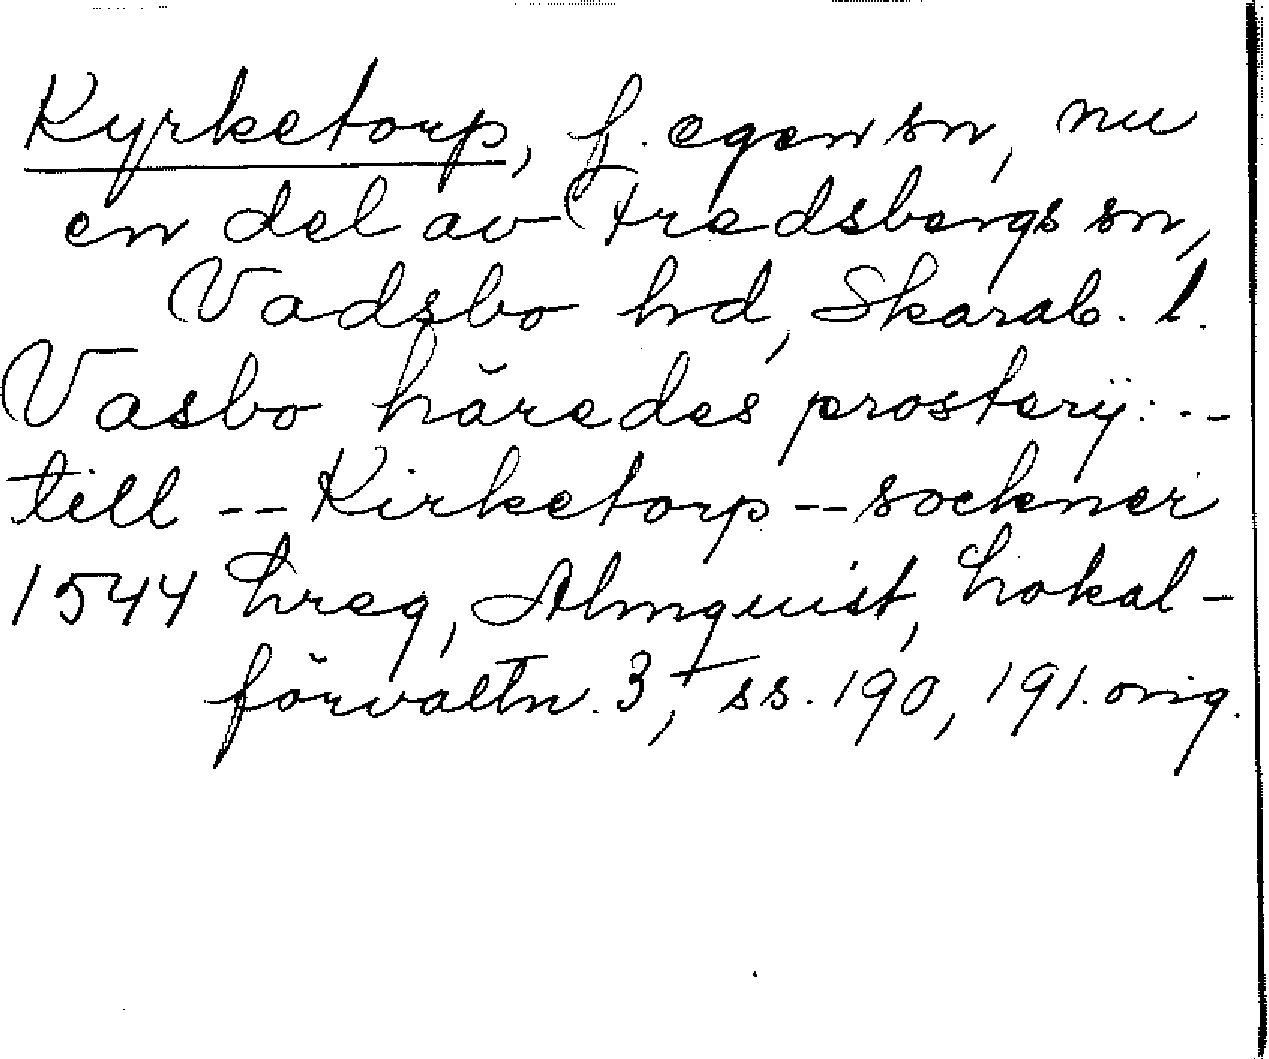 Kyrketorp, f. egen sn, nu
en del av Fredsbergs sn,
Vadsbo hd, Skarab. l.
Vasbo häredes prosterÿ: --
till -- Kirketorp -- sockner
1544 hreg, Almquist, Lokal-
förvaltn. 3, ss. 190, 191. orig.